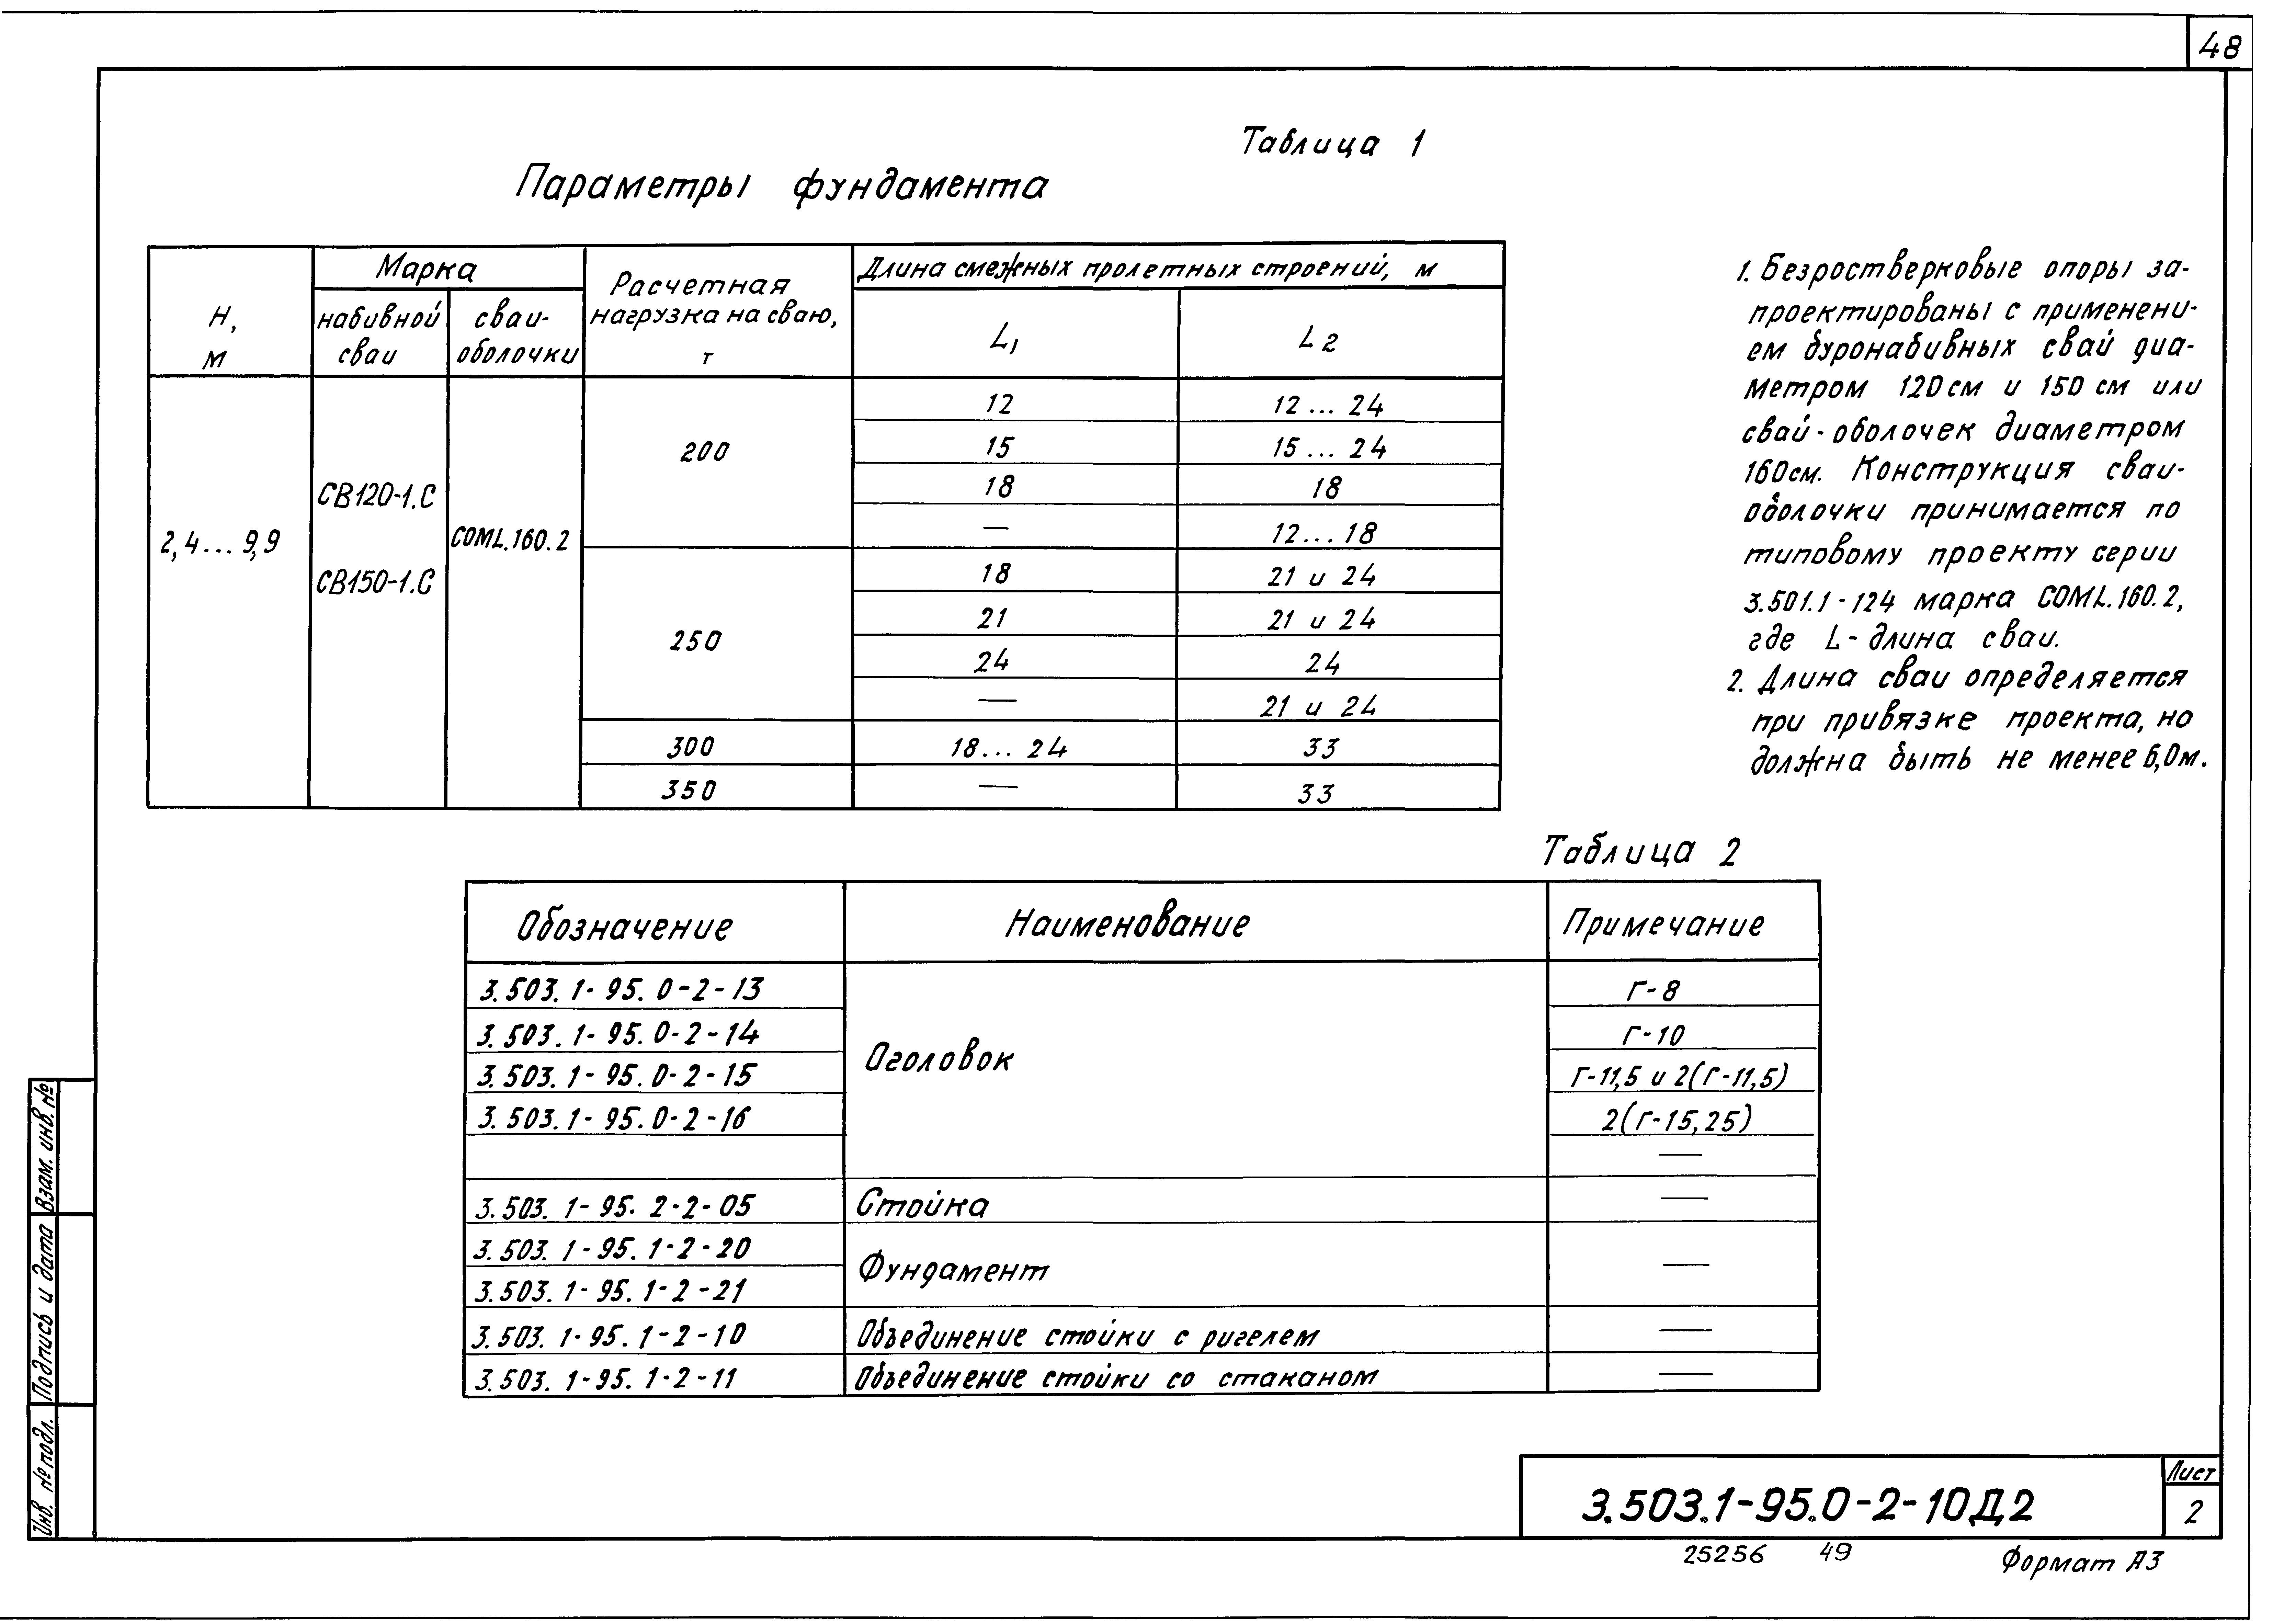 48
Таблица 1
Параметры фундамента
Н, м
Марка
набивной сваи
сваи-оболочки
Расчетная нагрузка на сваю, т
Длина смежных пролетных строений, м
L1
L2
2,4...9,9
СВ120-1.С
СВ150-1.С
СОМL.160.2
200
12 12...24
15 15...24
18 18
— 12...18
250
18 21 и 24
21 21 и 24
24 24
— 21 и 24
300 18...24 33
350 — 33
1. Безростверковые опоры за-
проектированы с применени-
ем буронабивных свай диа-
метром 120см и 150 см или
свай-оболочек диаметром
160см. Конструкция сваи-
оболочки принимается по
типовому проекту серии
3.501.1-124 марка СОМL.160.2,
где L-длина сваи.
2. Длина сваи определяется
при привязке проекта, но
должна быть не менее 6,0м.
Таблица 2
Обозначение Наименование Примечание
3.503.1-95.0-2-13 Г-8
3.503.1-95.0-2-14 Г-10
Оголовок
3.503.1-95.0-2-15 Г-11,5 и 2(Г-11,5)
3.503.1-95.0-2-16 2(Г-15,25)
—
3.503.1-95.2-2-05 Стойка —
3.503.1-95.1-2-20
Фундамент —
3.503.1-95.1-2-21
3.503.1-95.1-2-10 Объединение стойки с ригелем —
3.503.1-95.1-2-11 Объединение стойки со стаканом —
Взам. инв. №
Подпись и дата
Инв. № подл.
3.503.1-95.0-2-10Д2
Лист
2
25256 49
Формат А3